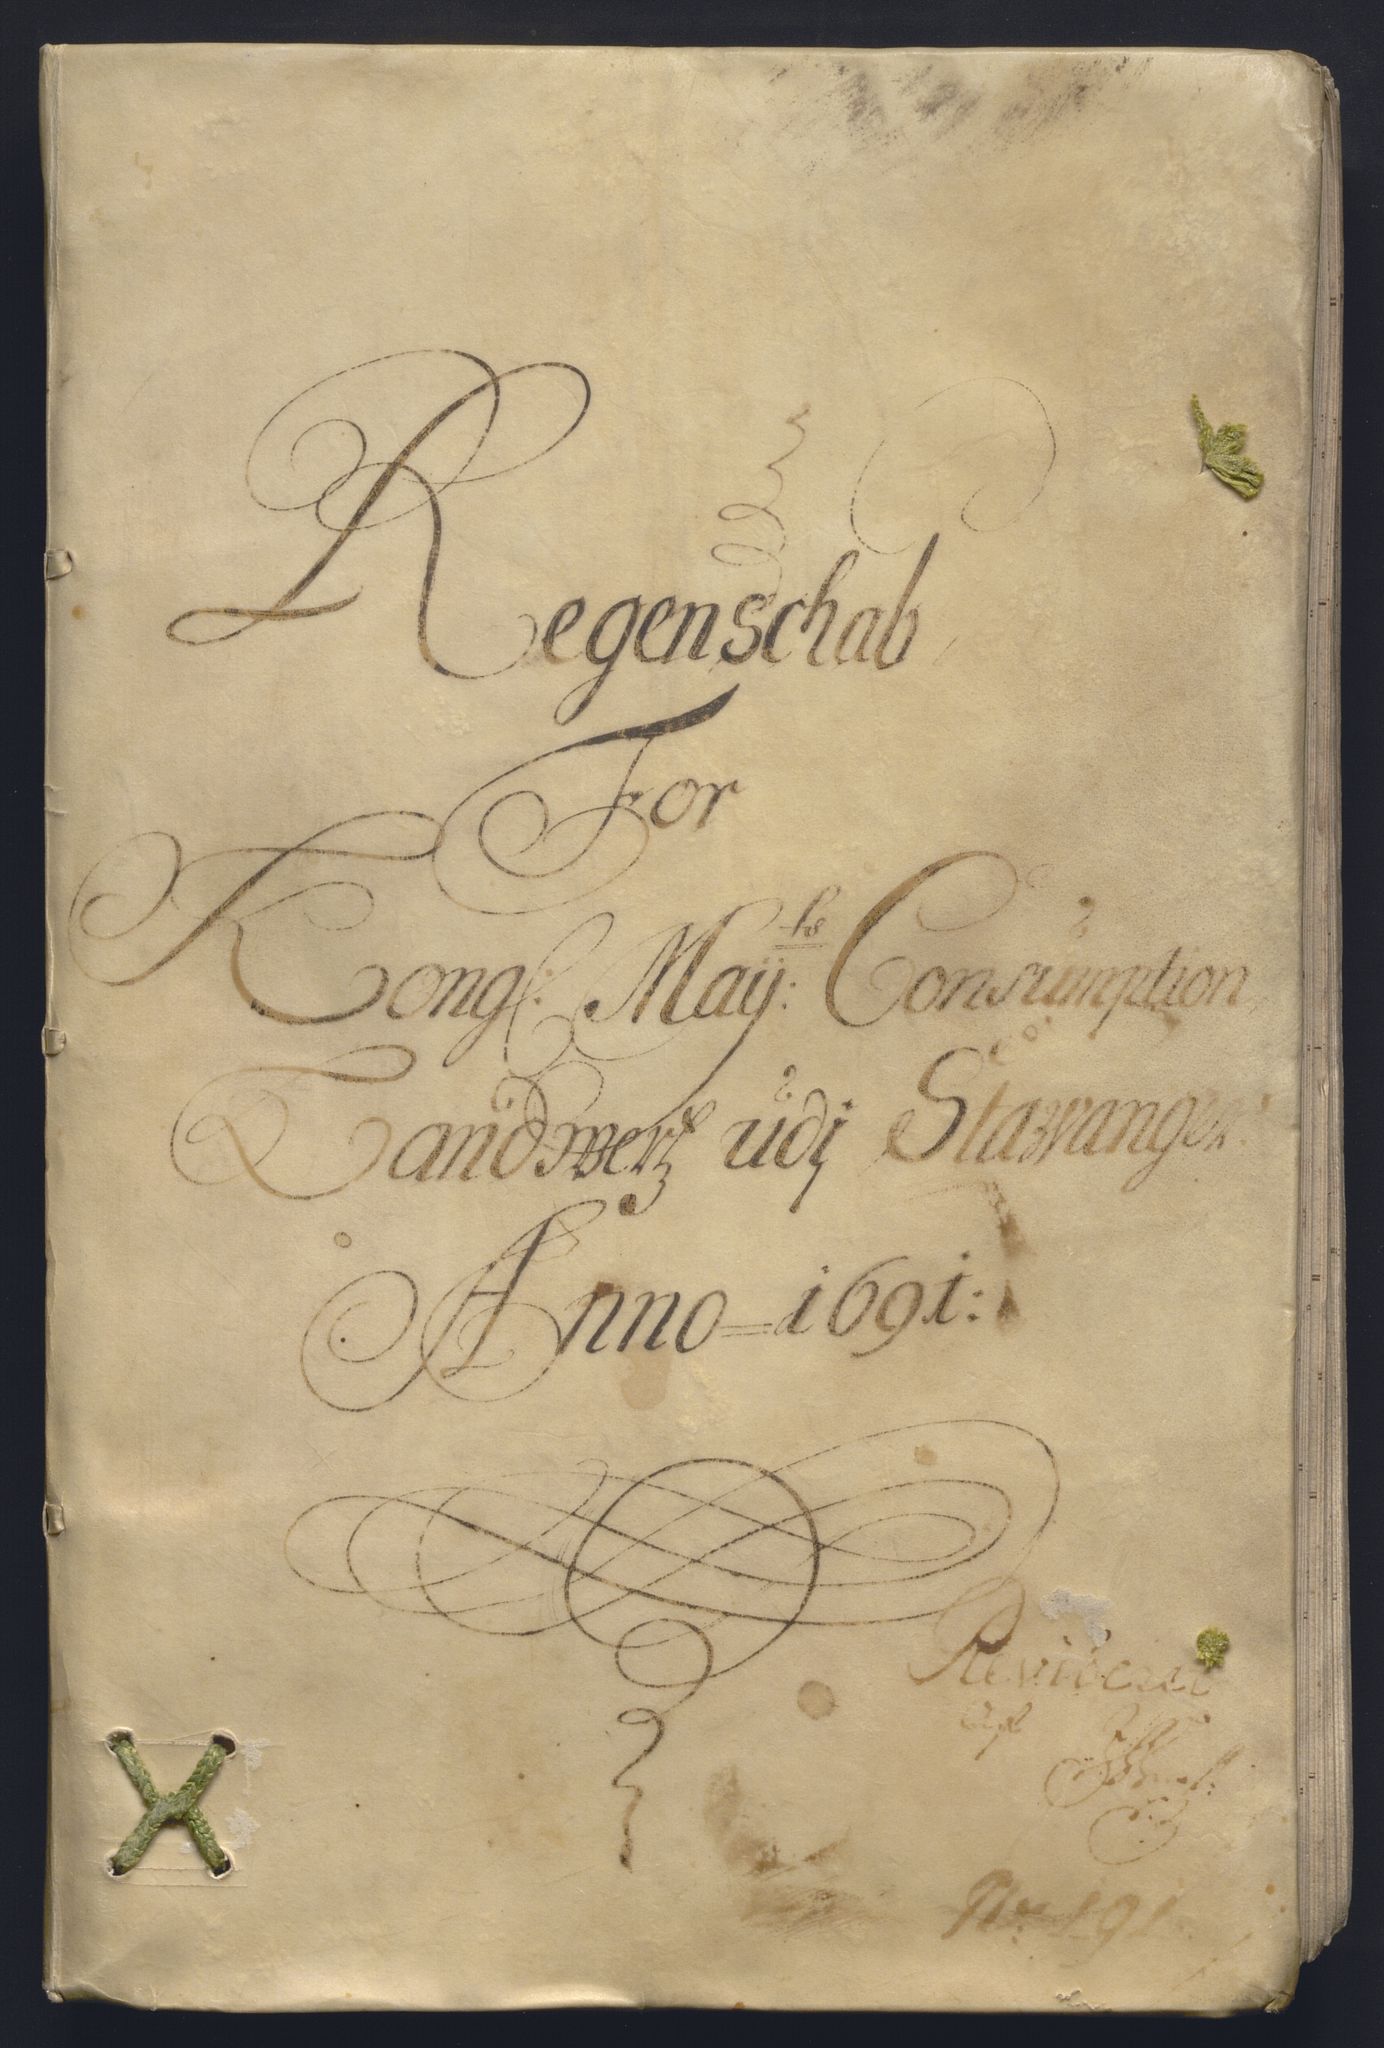 Regenschab
For
Kongl: Maÿ:ts Consumption
Landwerk udj Stawanger:
Anno 1691:
Revideret
No 191